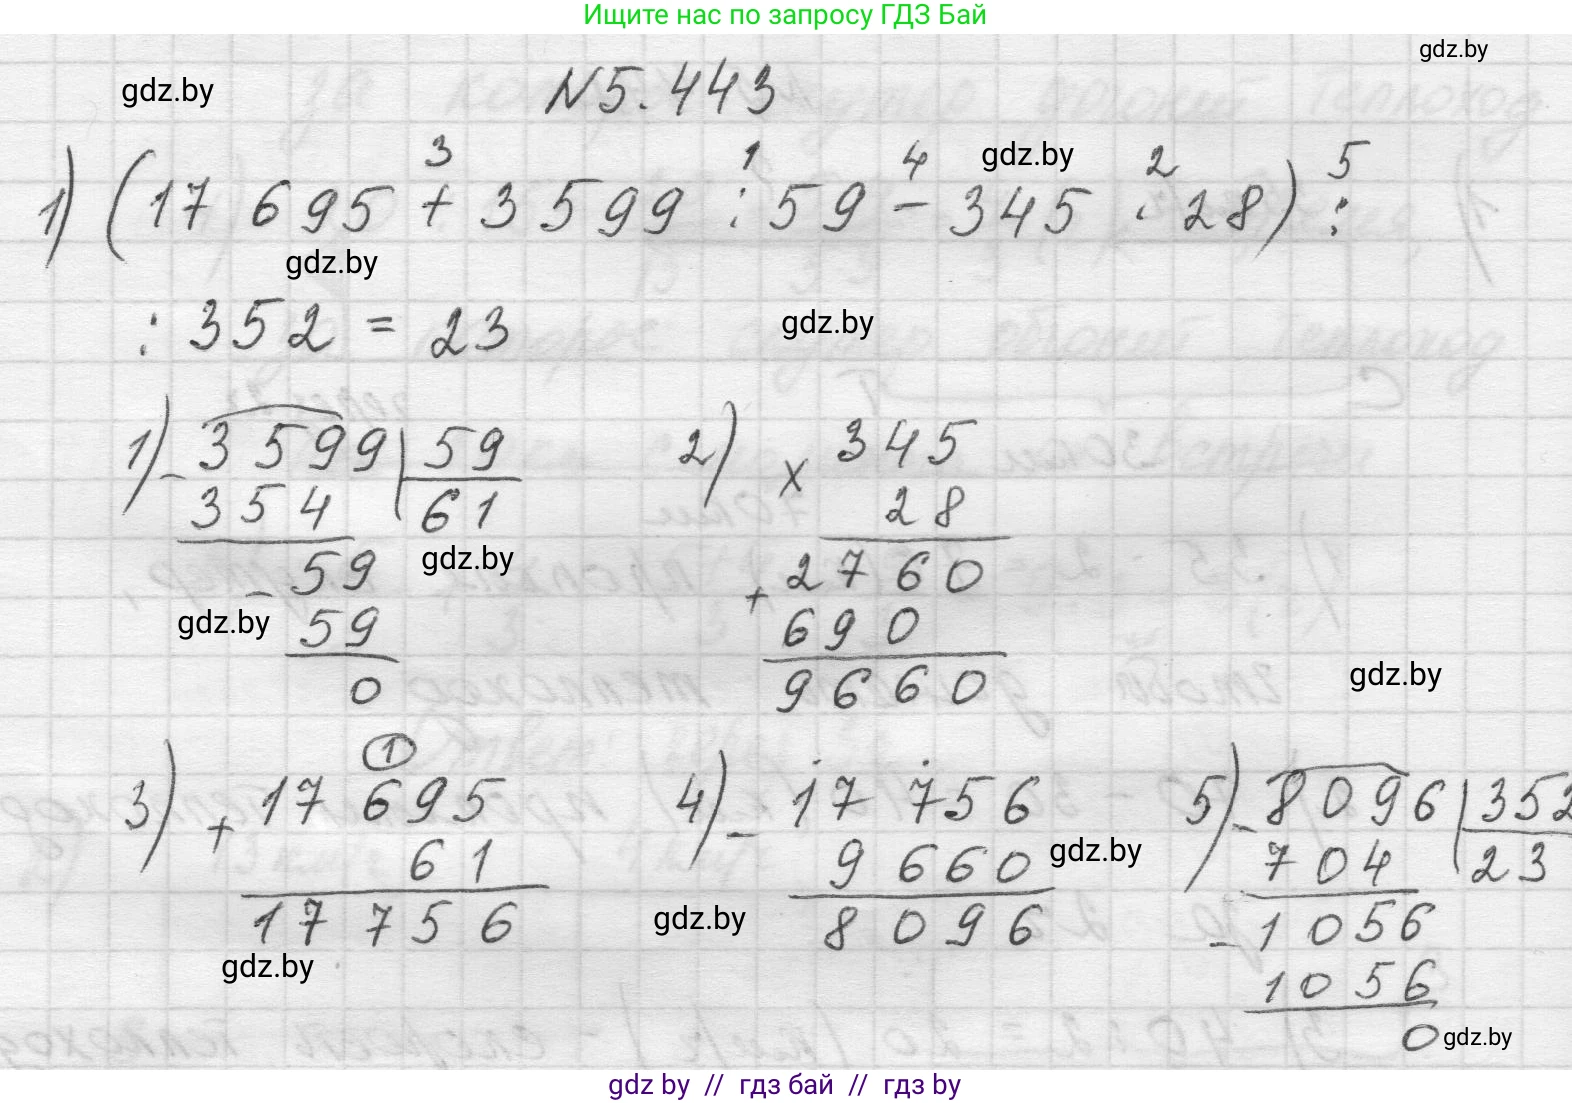 Ищите нас по запросу ГДЗ Бай
gdz.by
gdz.by
N5.443
3 1 4 gdz.by 2 5
1) (17 695 + 3599 : 59 − 345 · 28) :
gdz.by
: 352 = 23
gdz.by
1) − 3599 | 59
354 | 61
− 59
59
0
gdz.by
gdz.by
2) × 345
28
+ 2760
690
9660
gdz.by
3) 1
+ 17 695
61
17 756
gdz.by
4) − 17 756
9 660
8 096
gdz.by
gdz.by
5) − 8096 | 352
704 | 23
− 1056
1056
0
gdz.by
gdz by // гдз бай // гдз by